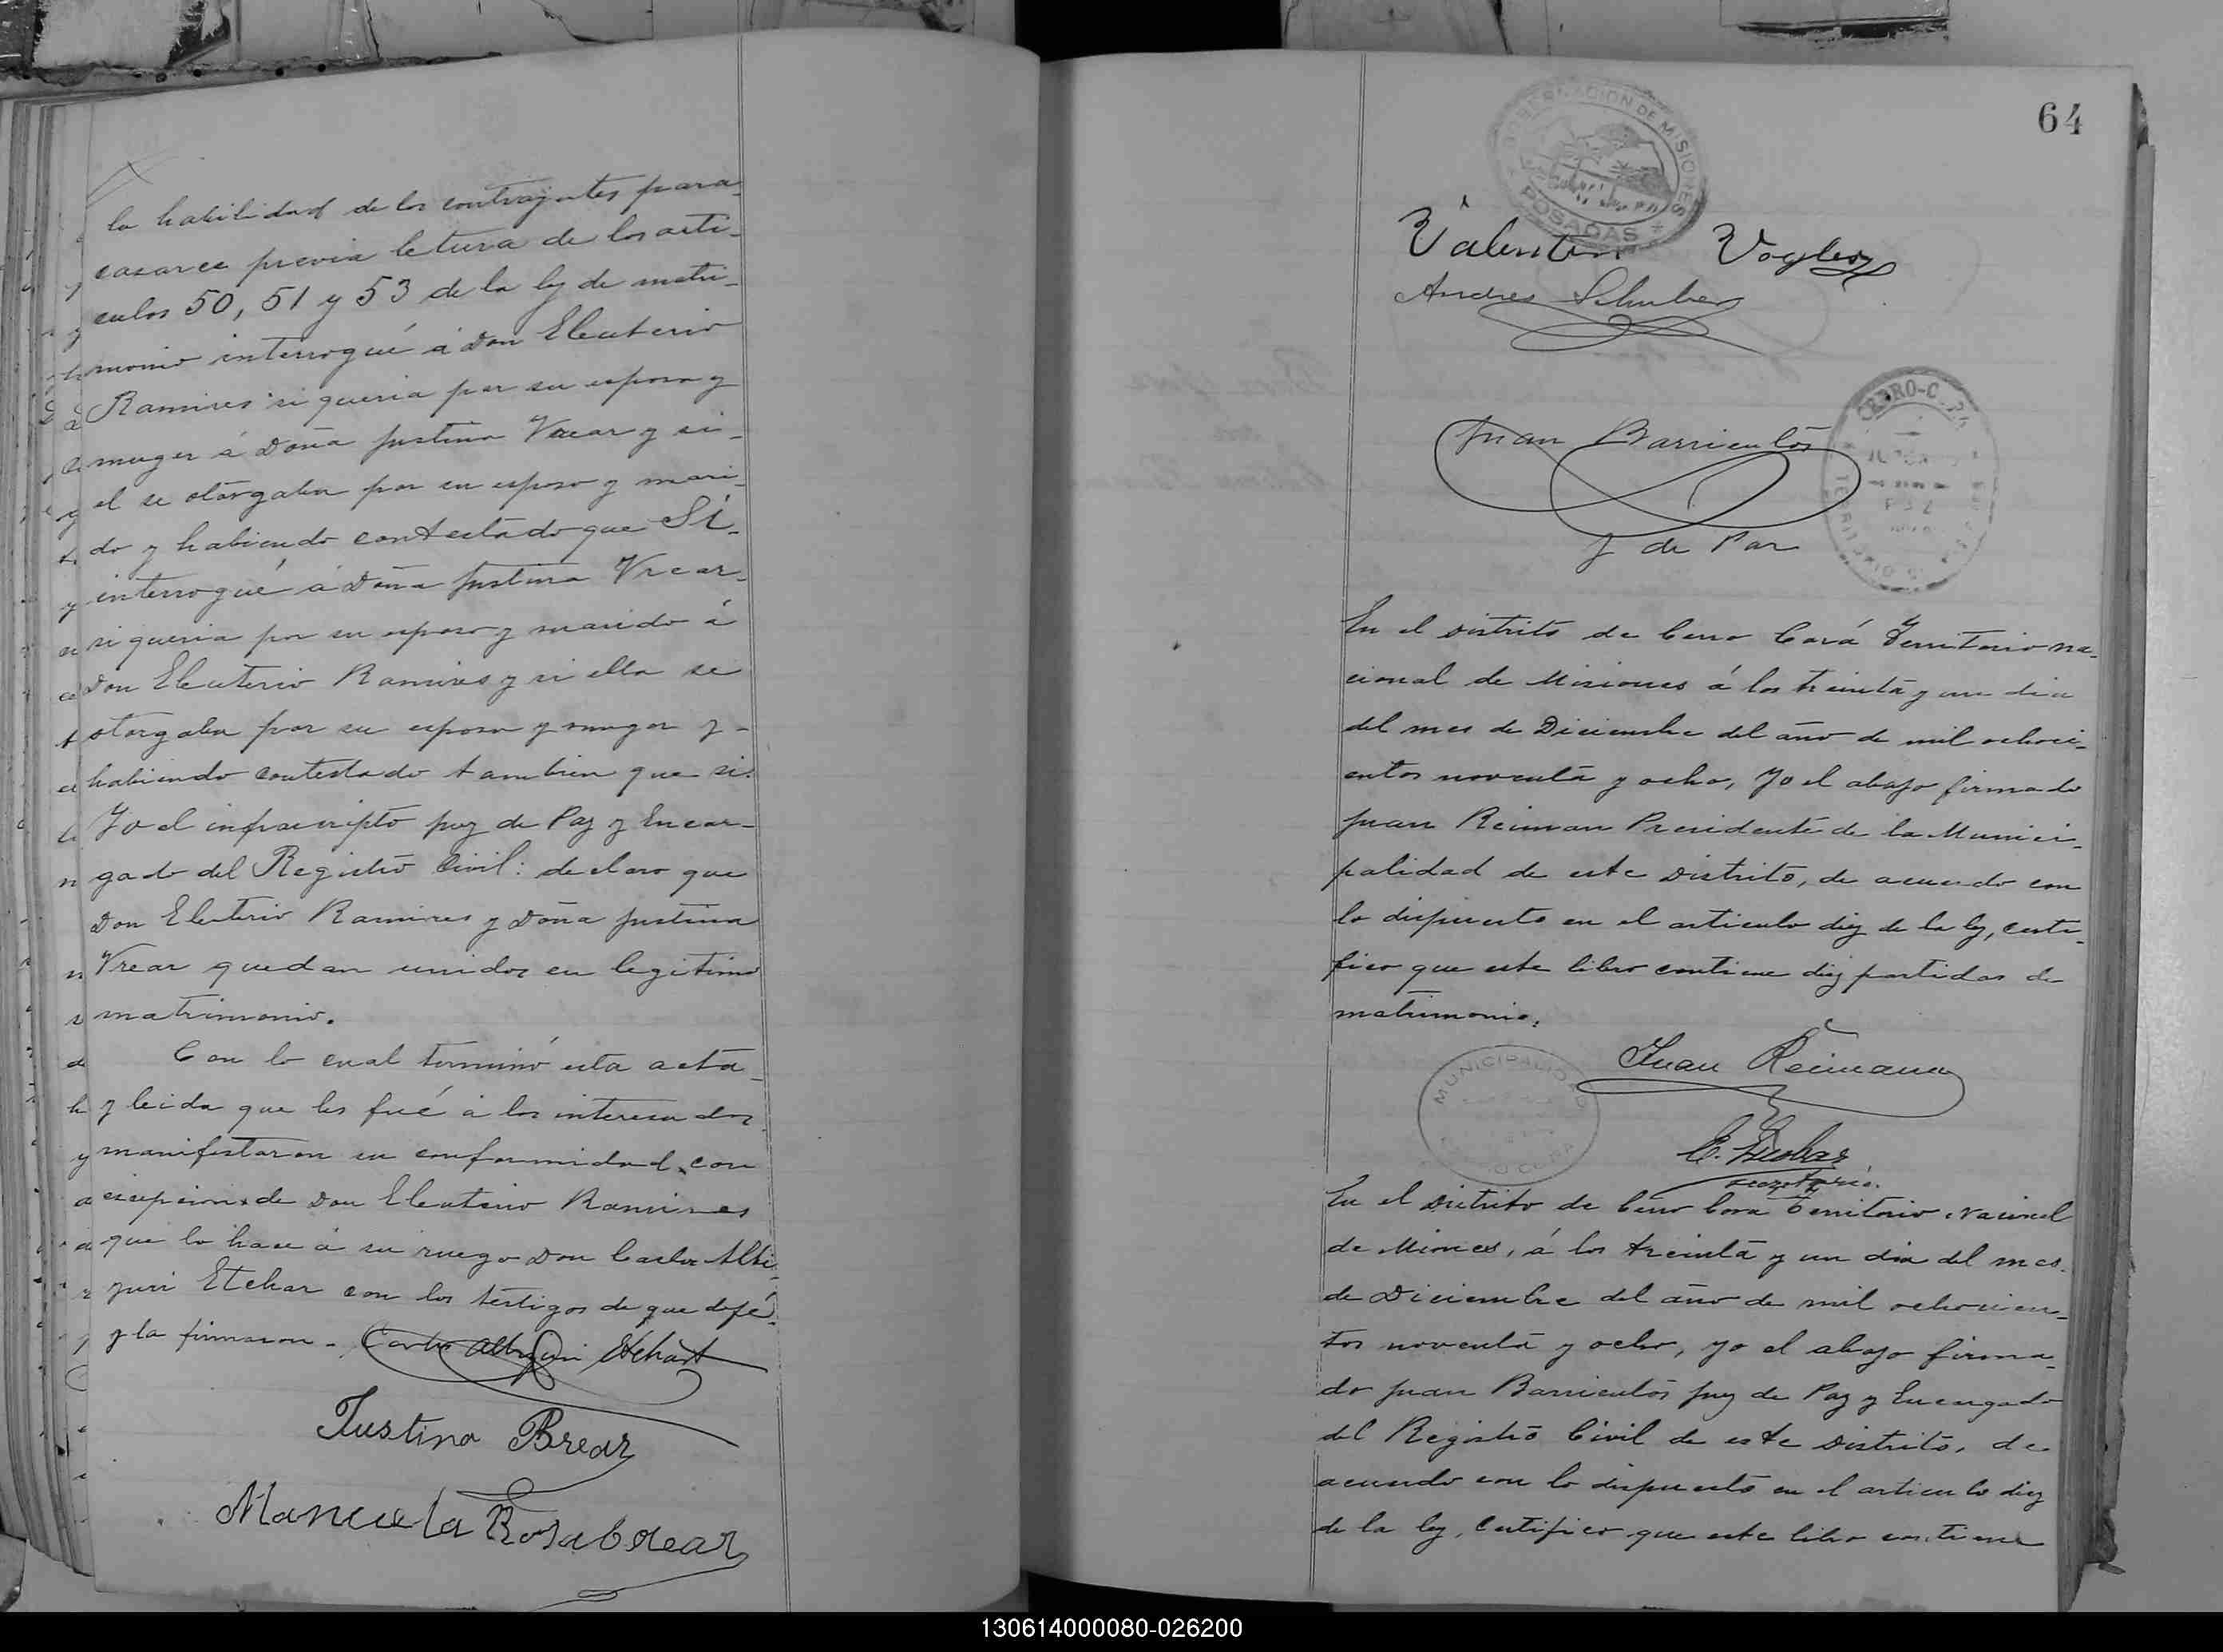 la habilidad de los contrayentes para
casarce previa letura de los arti-
culos 50, 51 y 53 de la ley de matri-
monio interrogué á Don Eleuterio
Ramires si queria por su esposa y
muger á Doña Justina Vrear y si
el se otorgaba por su esposo y mari-
do y habiendo contestado que Sí-
interrogué á Doña Justina Vrear-
si queria por su esposo y marido á
Don Eleuterio Ramires y si ella se
otorgaba por su esposa y muger y-
habiendo contestado tambien que si.
Yo el infrascripto juez de Paz y Encar-
gado del Registro Civil: declaro que
Don Eleuterio Ramires y Doña Justina
Vrear quedan unidos en legitimo
matrimonio.
Con lo cual terminó esta acta-
y leida que les fué á los interesados
manifestaron su conformidad, con
ecepcion de Don Eleuterio Ramires
que lo hace á su ruego Don Carlos Albi-
zuri Etchar con los testigos de que dofé
y la firmaron -. Carlos Albizuri Etchart
Justina Brear
Manuela Rosa Brear
64
GOBERNACION DE MISIONES
POSADAS
Valentin Vogler
Andres Schuber
Juan Barrientos
J de Paz
CERRO-CORA
En el Distrito de Cerro Corá Territorio na-
cional de Misiones á los treinta y un dia
del mes de Diciembre del año de mil ochoci-
entos noventa y ocho, Yo el abajo firmado
Juan Reiman Presidente de la Munici-
palidad de este Distrito, de acuerdo con
lo dispuesto en el articulo diez de la ley, certi-
fico que este libro contiene diez partidas de
matrimonio.
Juan Reimann
MUNICIPALIDAD
CERRO CORA
E. Escobar
secretario.
En el Distrito de Cerro Cora Territorio Nacional
de Miones, á los treinta y un dia del mes
de Diciembre del año de mil ochocien-
tos noventa y ocho, yo el abajo firma-
do Juan Barrientos juez de Paz y Encargado
del Registro Civil de este Distrito, de
acuerdo con lo dispuesto en el articulo diez
de la ley, Certifico que este libro contiene
130614000080-026200